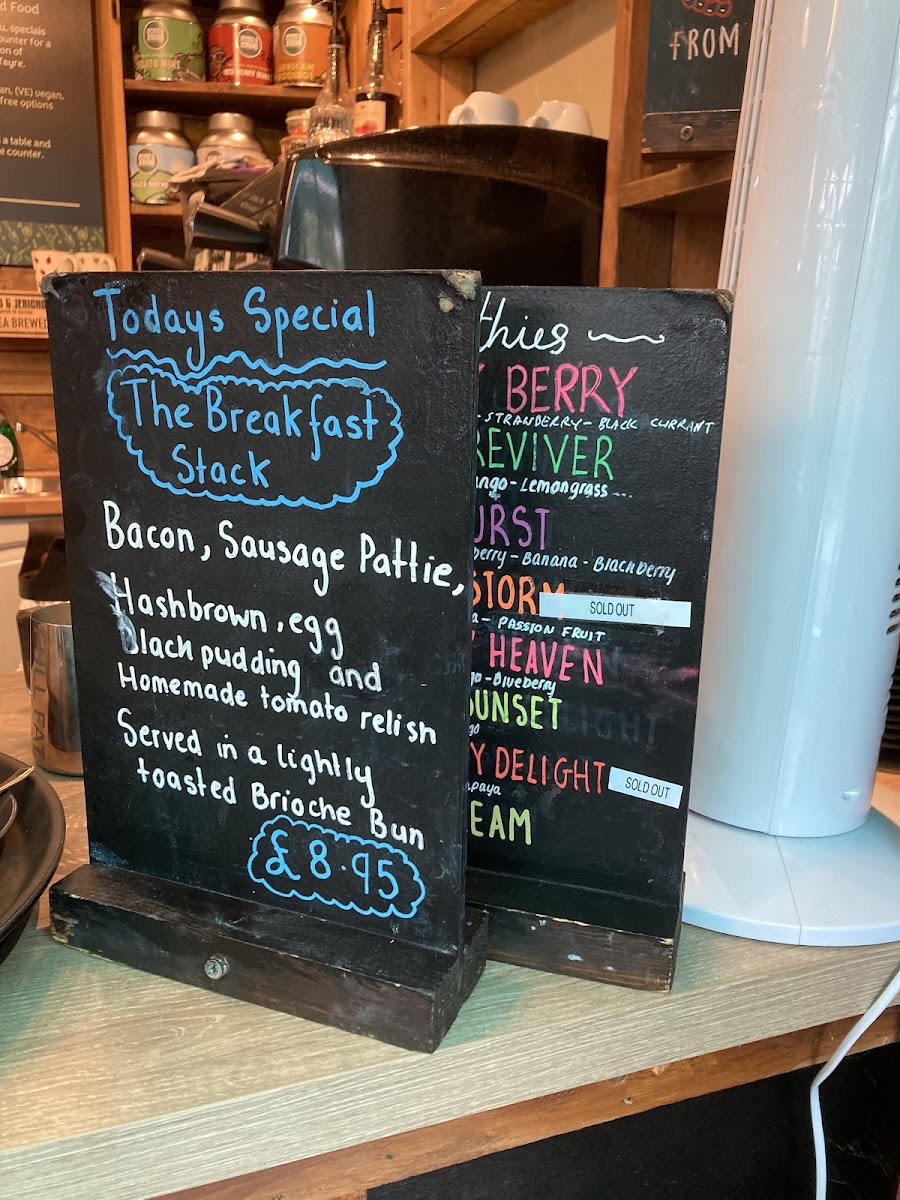 d Food
u, specials
ounter for a
on of
ayre.
an, (VE) vegan,
free options
a table and
e counter.
FROM
& JERICHO
EA BREWED
Todays Special
The Breakfast
Stack
Bacon, Sausage Pattie,
Hashbrown, egg
Black pudding and
Homemade tomato relish
Served in a lightly
toasted Brioche Bun
£8.95
thies
BERRY
- STRAWBERRY - BLACK CURRANT
REVIVER
ango - Lemongrass ...
URST
berry - Banana - Blackberry
STORM
SOLD OUT
a - PASSION FRUIT
HEAVEN
go - Blueberry
SUNSET
go
Y DELIGHT
SOLD OUT
apaya
EAM